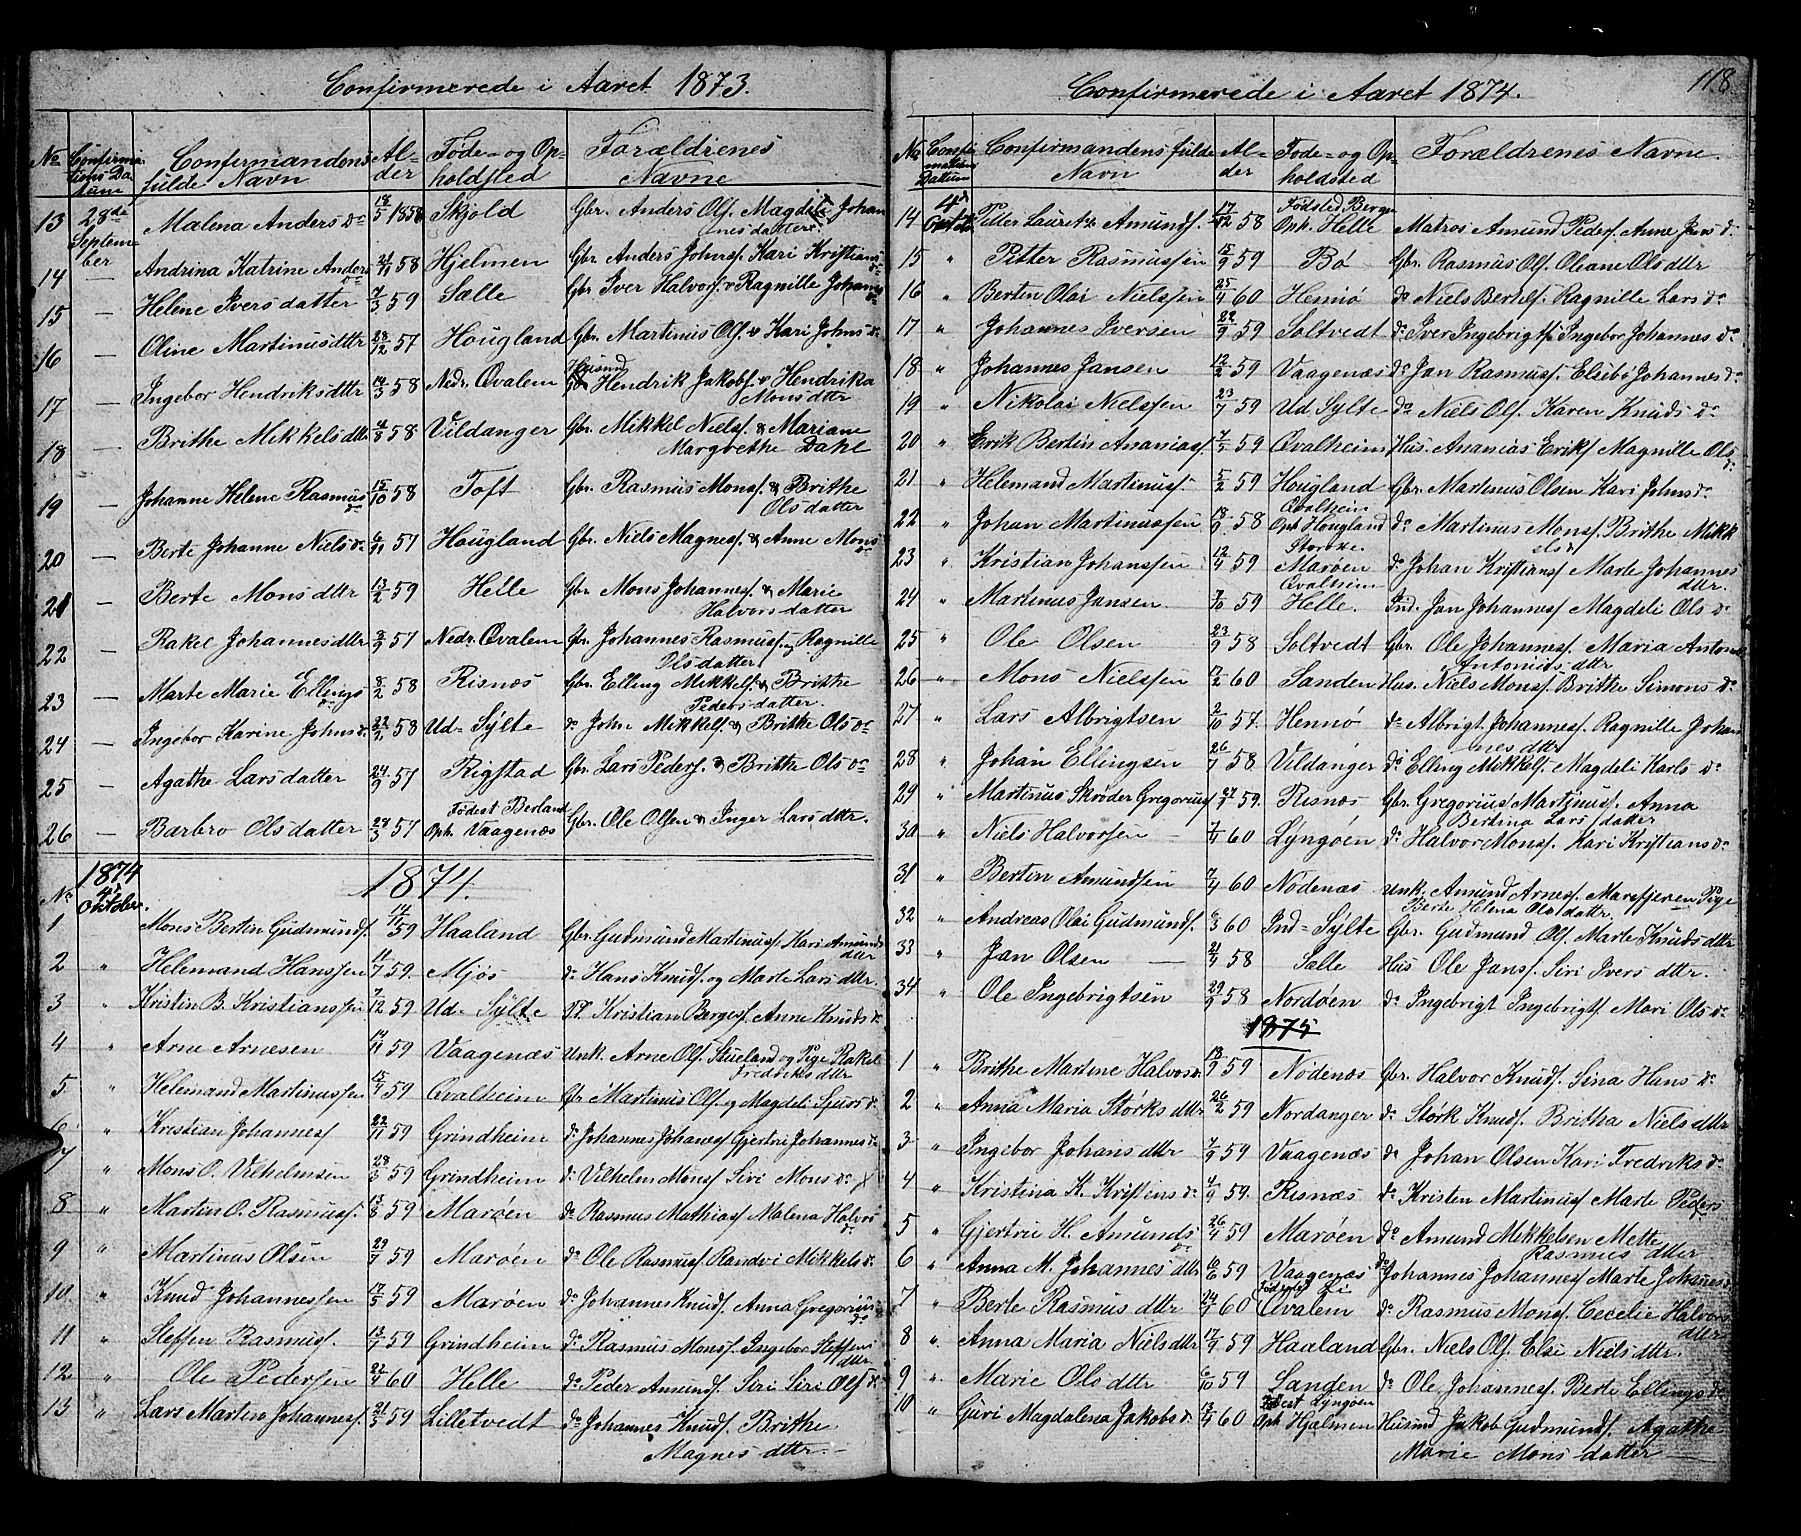 Confirmerede i Aaret 1873.
No Confirmations Datum Confirmandens fulde Navn Alder Føde- og Opholdsted Forældrenes Navne
13 28de September Malena Anders dr 18/5 1858 Skjold Gbr. Anders Ols. Magdeli Johannesdatter
14 Andrina Katrine Anders dr 21/11 58 Hjelmen Gbr Anders Johns. Kari Kristians dr
15 — Helene Iversdatter 7/5 59 Salle Gbr Iver Halvors. Ragnille Johanns dr
16 — Oline Martinusdttr 28/12 57 Hougland Gbr. Martinus Ols. Kari Johns dr
17 — Ingebor Hendriksdttr 14/3 58 Nedr. Qvalem Husmd Hendrik Jakobs. Hendrika Monsdttr
18 — Brithe Mikkelsdttr 4/8 58 Vildanger Gbr. Mikkel Niels. & Mariane Margrethe Dahl
19 — Johanne Helene Rasmus dr 15/10 58 Toft Gbr. Rasmus Mons. & Brithe Olsdatter
20 — Berte Johanne Niels dr 6/11 57 Hougland Gbr. Niels Magnes. & Anne Mons dr
21 — Berte Monsdttr 13/2 59 Helle Gbr. Mons Johannes. & Marie Halvorsdatter
22 — Rakel Johannesdttr 2/9 57 Nedr. Qvalem Gbr. Johannes Rasmus. og Ragnille Olsdatter
23 — Marte Marie Ellings dr 8/2 58 Risnæs Gbr. Elling Mikkels. & Brithe Pedersdatter
24 — Ingebor Karine Johns dr 22/11 58 Ud-Sylte do John Mikkels. & Brithe Ols dr
25 — Agathe Larsdatter 24/9 57 Rigstad Gbr. Lars Peders. & Brithe Ols dr
26 — Barbro Olsdatter 28/3 57 Fødest Berland Oph. Vaagenæs Gbr. Ole Olsen & Inger Larsdttr.
No 1874 4d Oktober. 1874.
1 Mons Bertin Gudmunds. 14/7 59 Haaland Gbr. Gudmund Martinus. Kari Amunds dttr
2 " Helemand Hanssen 11/7 59 Mjøs do Hans Knuds. og Marte Lars dttr.
3 " Kristen B. Kristianssen 7/12 59 Ud-Sylte Kristian Berges. Anne Knuds dr
4 " Arne Arnesen 14/11 59 Vaagenæs Unk. Arne Ols. Stueland og Pige Rakel Fredriksdttr
5 " Helemand Martinussen 15/4 59 Qvalheim Gbr Martinus Ols. og Magdeli Sjurs dr
6 " Kristian Johannes. 22/11 59 Grindheim do Johannes Johanes. Gjertrui Johannes dr
7 " Mons O. Vilhelmsen 28/3 59 Grindheim do Vilhelm Mons. Siri Mons dr
8 " Martin O. Rasmus. 13/8 59 Marøen do Rasmus Mathias. Malena Halvors dr
9 " Martinus Olsen 29/7 59 Marøen do Ole Rasmus. Randvi Mikkels dr
10 " Knud Johannessen 17/5 59 Marøen do Johannes Knuds. Anna Gregorius dr
11 " Steffen Rasmus. 13/7 59 Grindheim do Rasmus Mons. Ingebor Steffens dttr
12 " Ole Pedersen 22/4 60 Helle do Peder Amunds. Siri Siri Ols dr
13 " Lars Martin Johannes. 21/3 59 Lilletvedt do Johannes Knuds. Brithe Magnes dttr. —
Confirmerede i Aaret 1874. 118
No Confirmations Dattum Confirmandens fulde Navn Alder Føde- og Opholdsted Forældrenes Navne.
14 4d Octob. Petter Lauretz Amunds. 17/12 58 Fødsted Bergen Oph. Helle Matros Amund Peders. Anne Jens dr.
15 " Petter Rasmussen 15/9 59 Bø Gbr. Rasmus Ols. Oleane Ols dttr
16 " Bertin Olai Nielssen 25/4 60 Hennø do Niels Bertels. Ragnille Lars dr
17 " Johannes Iversen 22/9 59 Soltvedt do Iver Ingebrigts. Ingebor Johannes dr
18 " Johannes Jansen 12/2 59 Vaagenæs do Jan Rasmus. Elsebe Johannes dr
19 " Nikolai Nielssen 23/7 59 Ud Sylte do Niels Ols. Karen Knuds dr
20 " Enrik Bertin Ananias. 7/5 59 Qvalheim Hus. Ananias Eriks. Magnille Ols dr
21 " Helemand Martinus. 5/2 59 Hougland Gbr. Martinus Olsen Kari Johns dr.
22 " Johan Martinussen 18/9 58 Qvalheim Oph Hougland do Martinus Mons. Brithe Mikkels dr
23 " Kristian Johanssen 12/4 59 Marøen do Johan Kristians. Marte Johannes dttr.
24 " Martinus Jansen 7/10 59 Qvalheim Helle. Ind. Jan Johannes. Magdeli Ols dr
25 " Ole Olsen 23/9 58 Soltvedt Gbr. Ole Johannes. Maria Antonius dttr
26 " Mons Nielssen 17/2 60 Sanden Hus. Niels Mons. Brithe Simons dr
27 " Lars Albrigtsen 2/10 57. Hennø do Albrigt Johannes. Ragnille Johannes dttr
28 " Johan Ellingsen 26/7 58 Vildanger do Elling Mikkels. Magdeli Karls dr
29 " Martinus Skrøder Gregorius. 27/7 59. Risnæs Gbr. Gregorius Martinus. Anna Bertina Larsdatter
30 " Niels Halvorsen 7/4 60 Lyngøen do Halvor Mons. Kari Kristians dr
31 " Bertin Amundsen 7/4 60 Nødenæs Unk. Amund Arnes. Marsfjeren Pige Berte Helena Olsdatter
32 " Andreas Olai Gudmunds. 6/3 60 Ind-Sylte Gbr. Gudmund Ols. Marte Knudsdttr
33 " Jan Olsen — 21/9 58 Salle Hus Ole Jans. Siri Ivers dttr.
34 " Ole Ingebrigtsen 29/9 58 Nordøen do Ingebrigt Ingebrigts. Mari Ols dr
1875
1 " Brithe Martine Halvors dr. 18/9 59 Nødenæs Gbr. Halvor Knuds. Sina Hans dr
2 " Anna Maria Størks dttr 26/2 59 Nordanger do Størk Knuds. Britha Niels dttr
3 " Ingebor Johans dttr 7/9 59 Vaagenæs do Johan Olsen Kari Fredriks dr
4 " Kristina K. Kristens dr 4/9 59. Risnæs do Kristen Martinus. Marte Peders dr
5 " Gjertrü H. Amunds dr 26/4 59 Marøen do Amund Mikkelsen Mette Rasmus dttr
6 " Anna M. Johannes dttr 16/6 59 Vaagenæs do Johannes Johannes. Marte Johanes dr
7 " Berte Rasmus dttr 24/1 60 Fødsted Li Qvalem do Rasmus Mons. Cecelie Halvors dttr
8 " Anna Maria Niels dttr 17/9 59 Haaland Gbr. Niels Ols. Else Niels dttr.
9 " Marie Ols dttr 6/10 59 Sanden do Ole Johannes. Berte Ellings dr
10 " Guri Magdalena Jakobs dr 13/4 60 Fødest Lyngøen Oph Hjelmen Husmd Jakob Gudmunds. Agathe Marie Mons datter —